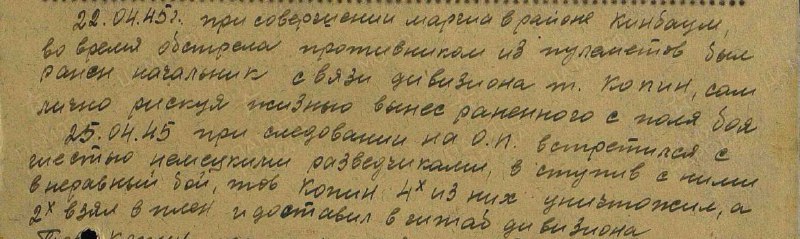 22.04.45г. при совершении марша в районе Кинбаум,
во время обстрела противником из пулеметов был
ранен начальник связи дивизиона т. Копин, сам
лично рискуя жизнью вынес раненного с поля боя
25.04.45 при следовании на О.П. встретился с
шестью немецкими разведчиками, вступив с ними
в неравный бой, тов Копин 4х из них уничтожил, а
2х взял в плен и доставил в штаб дивизиона